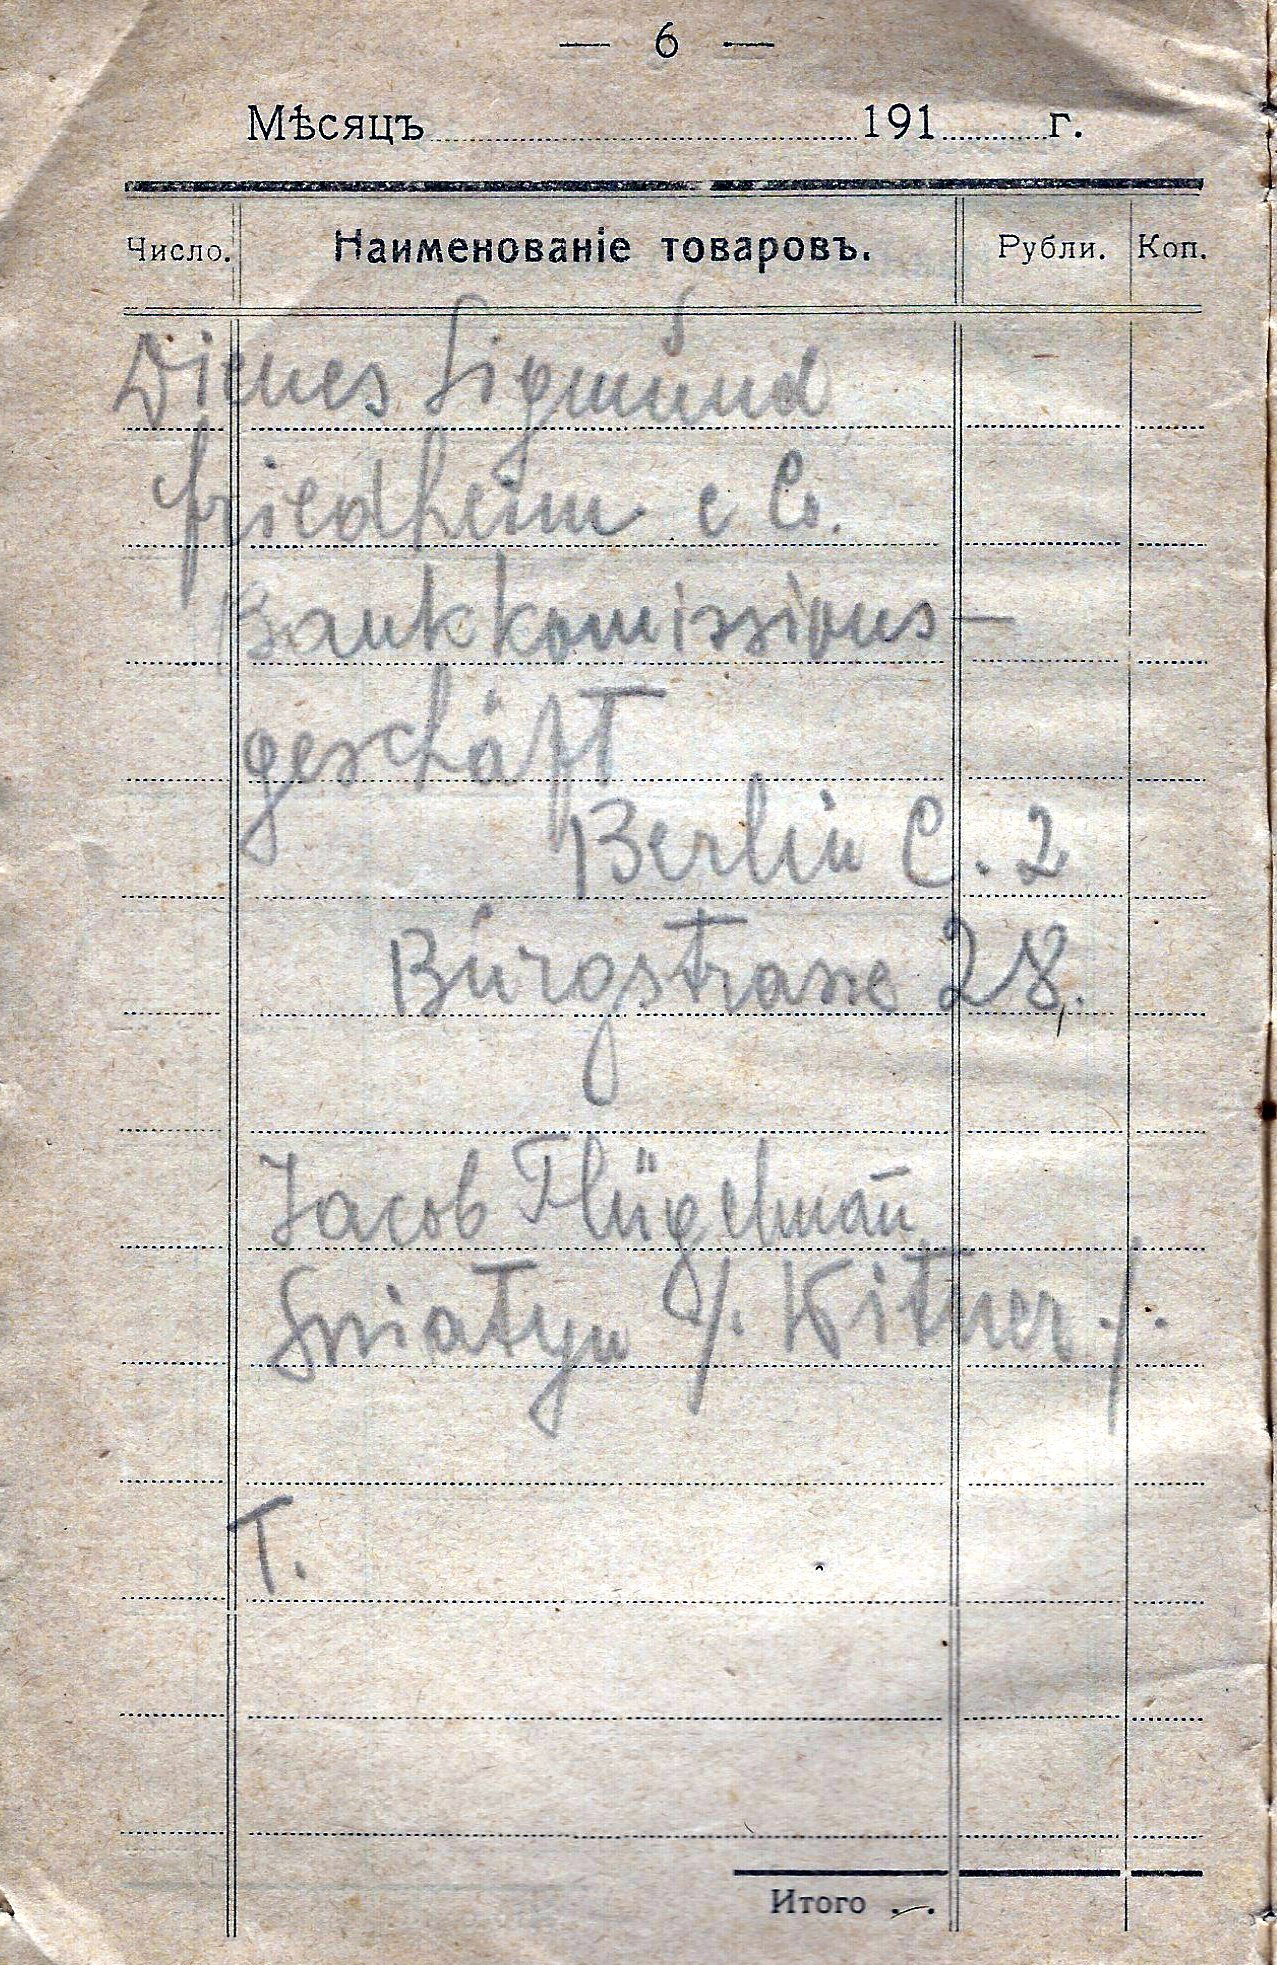 — 6 —
Мѣсяцъ 191 г.
Число. Наименованіе товаровъ. Рубли. Коп.
Dienes Sigmund
Friedheim & C.
Bankkomissions-
geschäft
Berlin C. 2
Burgstrasse 28.
Jacob Flügelman̄
Sniatyn /. Kitner ./.
T.
Итого . .